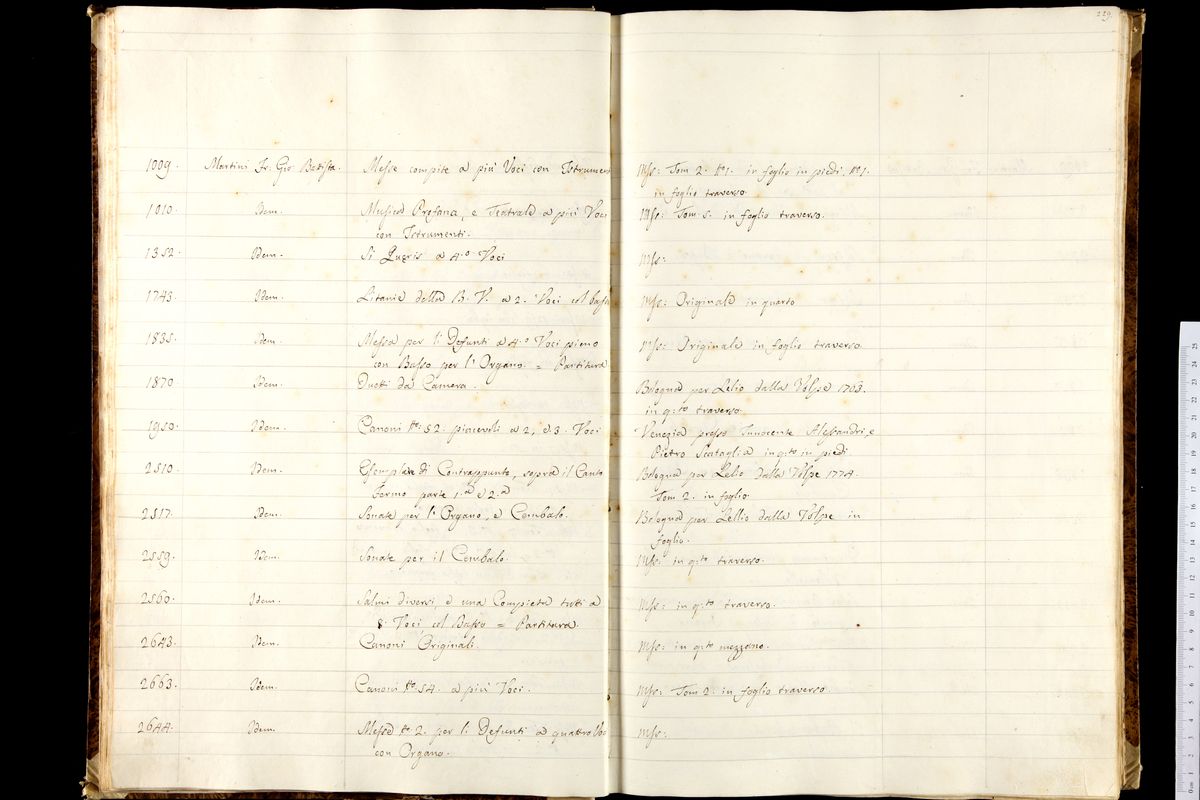 229.
1009. Martini Fr. Gio Batista. Messe compite a più Voci con Istrumen Mss: Tom 2. No 1. in foglio in piedi. No 1.
in foglio traverso.
1010. Idem. Musica Profana, e Teatrale a più Voci Mss: Tom. 5. in foglio traverso.
con Istrumenti.
1352. Idem. Si Quæris a 4.o Voci Mss:
1743. Idem. Litanie della B. V. a 2. Voci col basso Mss: Originale in quarto
1835. Idem. Messa per li Defunti a 4.o Voci pieno Mss: Originale in foglio traverso.
con Basso per l'Organo. = Partitura
1870. Idem. Duetti da Camera. Bologna per Lelio dalla Volpe 1763.
in q:to traverso.
1950. Idem. Canoni No. 52. piacevoli a 2, e 3. Voci Venezia presso Innocente Alessandri, e
Pietro Scataglia in q:to in piedi
2510. Idem. Esemplare di Contrappunto, sopra il Canto Bologna per Lelio dalla Volpe 1774.
Fermo parte 1.a e 2.a Tom 2. in foglio.
2517. Idem. Sonate per l'Organo, e Cembalo. Bologna per Lellio dalla Volpe in
foglio.
2559. Idem. Sonate per il Cembalo. Mss: in q:to traverso.
2560. Idem. Salmi diversi, e una Compieta tutti a Mss: in q:to traverso.
8. Voci col Basso = Partitura.
2643. Idem. Canoni Originali. Mss: in q:to mezzano.
2663. Idem. Canoni No. 54. a più Voci. Mss: Tom 2. in foglio traverso.
2644. Idem. Messe No. 2. per li Defunti a quattro Voc Mss:
con Organo.